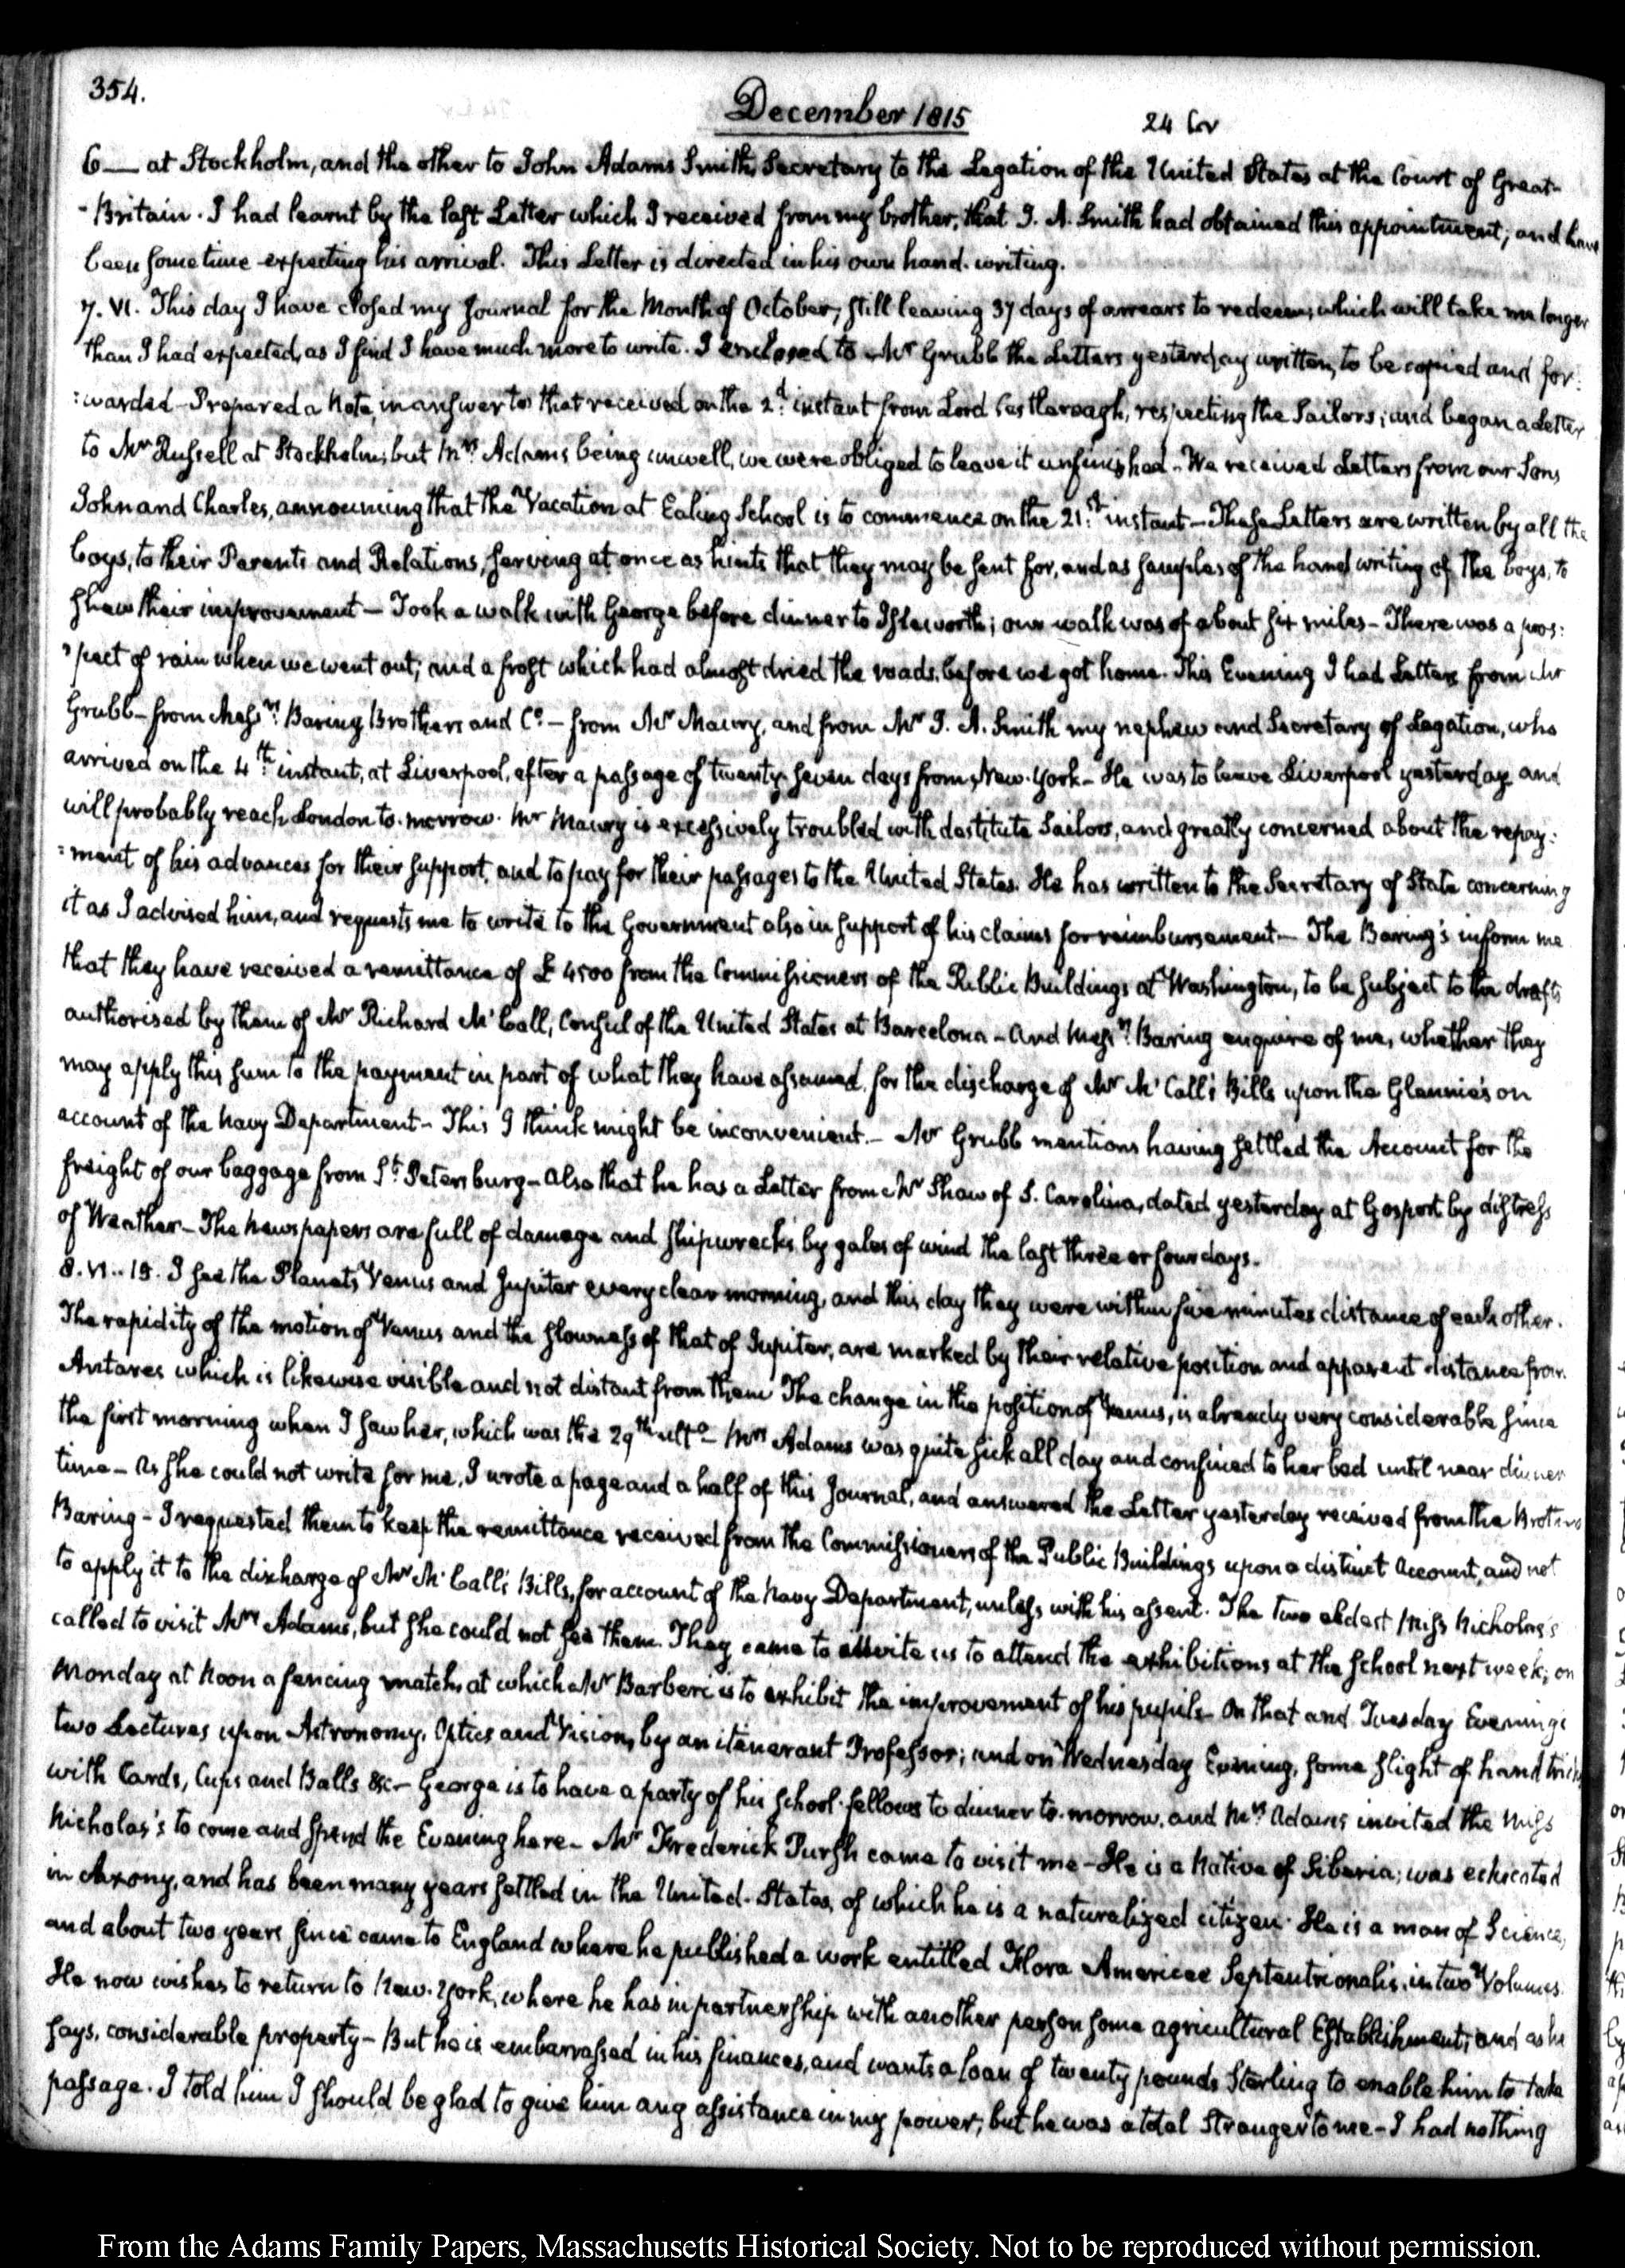 354.
December 1815
24
6— at Stockholm, and the other to John Adams Smith, Secretary to the Legation of the United States at the Court of Great-
-Britain. I had learnt by the last Letter which I received from my brother, that J. A. Smith had obtained this appointment; and have
been some time expecting his arrival. This Letter is directed in his own hand-writing.
7. VI. This day I have closed my Journal for the Month of October, still leaving 37 days of arrears to redeem, which will take me longer
than I had expected, as I find I have much more to write. I enclosed to Mr Grubb the Letters yesterday written, to be copied and for:
:warded — Prepared a Note, in answer to that received on the 2d instant from Lord Castlereagh, respecting the Sailors; and began a Letter
to Mr Russell at Stockholm; but Mrs Adams being unwell, we were obliged to leave it unfinished — We received Letters from our Sons
John and Charles, announcing that the Vacation at Ealing School is to commence on the 21st instant — These Letters are written by all the
boys, to their Parents and Relations, serving at once as hints that they may be sent for, and as samples of the hand writing of the boys, to
shew their improvement — Took a walk with George before dinner to Isleworth; our walk was of about six miles — There was a pros:
:pect of rain when we went out; and a frost which had almost dried the roads, before we got home. This Evening I had Letters from Mr
Grubb — from Messrs Baring Brothers and Co — from Mr Maury, and from Mr J. A. Smith my nephew and Secretary of Legation, who
arrived on the 4th instant, at Liverpool, after a passage of twenty-seven days from New-York — He was to leave Liverpool yesterday and
will probably reach London to-morrow. Mr Maury is excessively troubled with destitute Sailors, and greatly concerned about the repay:
:ment of his advances for their support, and to pay for their passages to the United States. He has written to the Secretary of State concerning
it as I advised him, and requests me to write to the Government also in support of his claims for reimbursement — The Baring's inform me
that they have received a remittance of £4500 from the Commissioners of the Public Buildings at Washington, to be subject to the drafts
authorised by them of Mr Richard McCall, Consul of the United States at Barcelona — And Messrs Baring enquire of me, whether they
may apply this sum to the payment in part of what they have assumed, for the discharge of Mr McCall's Bills upon the Glennie's on
account of the Navy Department — This I think might be inconvenient. — Mr Grubb mentions having settled the Account for the
freight of our baggage from St Petersburg — Also that he has a Letter from Mr Shaw of S. Carolina, dated yesterday at Gosport by distress
of Weather — The Newspapers are full of damage and Shipwrecks by gales of wind the last three or four days.
8. VI..15. I see the Planets Venus and Jupiter every clear morning, and this day they were within five minutes distance of each other.
The rapidity of the motion of Venus and the slowness of that of Jupiter, are marked by their relative position and apparent distance from
Antares which is likewise visible and not distant from them The change in the position of Venus, is already very considerable since
the first morning when I saw her, which was the 29th ulto — Mrs Adams was quite sick all day and confined to her bed until near dinner
time — As she could not write for me, I wrote a page and a half of this Journal, and answered the Letter yesterday received from the Brothers
Baring — I requested them to keep the remittance received from the Commissioners of the Public Buildings upon a distinct Account, and not
to apply it to the discharge of Mr McCall's Bills, for account of the Navy Department, unless with his assent. The two eldest Miss Nicholas's
called to visit Mrs Adams, but she could not see them. They came to invite us to attend the exhibitions at the School next week; on
Monday at Noon a fencing match, at which Mr Barberi is to exhibit the improvement of his pupils — On that and Tuesday Evenings
two Lectures upon Astronomy, Optics and Vision, by an itenerant Professor; and on Wednesday Evening, some slight of hand tricks
with Cards, Cups and Balls &c — George is to have a party of his school-fellows to dinner to-morrow, and Mrs Adams invited the Miss
Nicholas's to come and spend the Evening here — Mr Frederick Pursh came to visit me — He is a Native of Siberia; was educated
in Saxony, and has been many years settled in the United-States, of which he is a naturalized citizen. He is a man of Science,
and about two years since came to England where he published a work entitled Flora Americae Septentrionalis, in two Volumes.
He now wishes to return to New-York, where he has in partnership with another person some agricultural Establishment; and as he
says, considerable property — But he is embarrassed in his finances, and wants a loan of twenty pounds Sterling to enable him to take
passage. I told him I should be glad to give him any assistance in my power; but he was a total Stranger to me — I had nothing
From the Adams Family Papers, Massachusetts Historical Society. Not to be reproduced without permission.